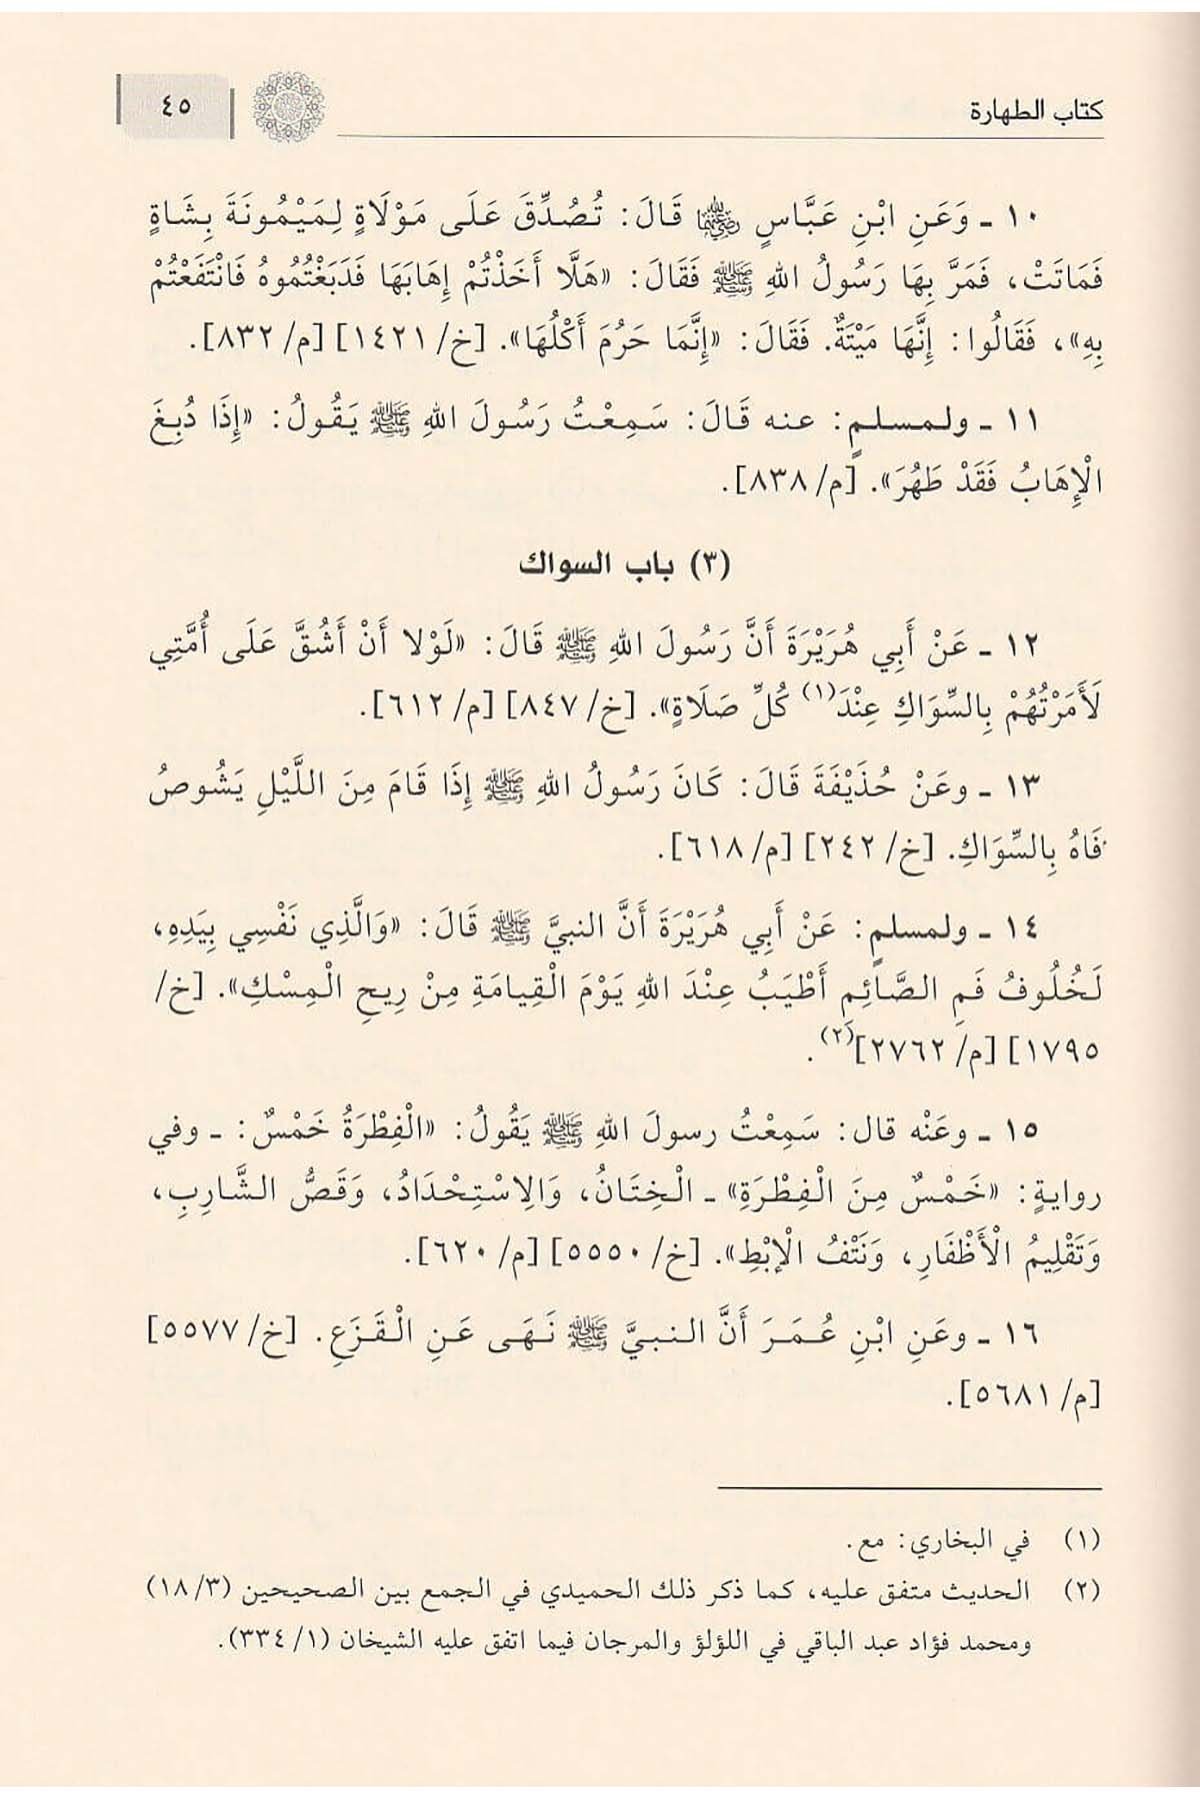 كتاب الطهارة
٤٥
١٠ ـ وَعَنِ ابْنِ عَبَّاسٍ رضي الله عنهما قَالَ: تُصُدِّقَ عَلَى مَوْلَاةٍ لِمَيْمُونَةَ بِشَاةٍ
فَمَاتَتْ، فَمَرَّ بِهَا رَسُولُ اللهِ ﷺ فَقَالَ: «هَلَّا أَخَذْتُمْ إِهَابَهَا فَدَبَغْتُمُوهُ فَانْتَفَعْتُمْ
بِهِ»، فَقَالُوا: إِنَّهَا مَيْتَةٌ. فَقَالَ: «إِنَّمَا حَرُمَ أَكْلُهَا». [خ/ ١٤٢١] [م/ ٨٣٢].
١١ ـ ولمسلمٍ: عنه قَالَ: سَمِعْتُ رَسُولَ اللهِ ﷺ يَقُولُ: «إِذَا دُبِغَ
الْإِهَابُ فَقَدْ طَهُرَ». [م/ ٨٣٨].
(٣) باب السواك
١٢ ـ عَنْ أَبِي هُرَيْرَةَ أَنَّ رَسُولَ اللهِ ﷺ قَالَ: «لَوْلا أَنْ أَشُقَّ عَلَى أُمَّتِي
لَأَمَرْتُهُمْ بِالسِّوَاكِ عِنْدَ(١) كُلِّ صَلَاةٍ». [خ/ ٨٤٧] [م/ ٦١٢].
١٣ ـ وعَنْ حُذَيْفَةَ قَالَ: كَانَ رَسُولُ اللهِ ﷺ إِذَا قَامَ مِنَ اللَّيْلِ يَشُوصُ
فَاهُ بِالسِّوَاكِ. [خ/ ٢٤٢] [م/ ٦١٨].
١٤ ـ ولمسلمٍ: عَنْ أَبِي هُرَيْرَةَ أَنَّ النبيَّ ﷺ قَالَ: «وَالَّذِي نَفْسِي بِيَدِهِ،
لَخُلُوفُ فَمِ الصَّائِمِ أَطْيَبُ عِنْدَ اللهِ يَوْمَ الْقِيَامَةِ مِنْ رِيحِ الْمِسْكِ». [خ/
١٧٩٥] [م/ ٢٧٦٢](٢).
١٥ ـ وعَنْه قال: سَمِعْتُ رسولَ اللهِ ﷺ يَقُولُ: «الْفِطْرَةُ خَمْسٌ: ـ وفي
روايةٍ: «خَمْسٌ مِنَ الْفِطْرَةِ» ـ الْخِتَانُ، وَالِاسْتِحْدَادُ، وَقَصُّ الشَّارِبِ،
وَتَقْلِيمُ الْأَظْفَارِ، وَنَتْفُ الْإبْطِ». [خ/ ٥٥٥٠] [م/ ٦٢٠].
١٦ ـ وعَنِ ابْنِ عُمَرَ أَنَّ النبيَّ ﷺ نَهَى عَنِ الْقَزَعِ. [خ/ ٥٥٧٧]
[م/ ٥٦٨١].
(١) في البخاري: مع.
(٢) الحديث متفق عليه، كما ذكر ذلك الحميدي في الجمع بين الصحيحين (١٨/٣)
ومحمد فؤاد عبد الباقي في اللؤلؤ والمرجان فيما اتفق عليه الشيخان (١/ ٣٣٤).